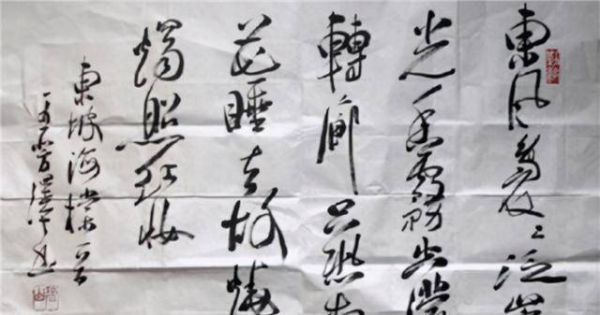 東風裊〻泛崇
光香霧空濛
轉廊只恐夜
花睡去故燒
燭照紅妝
東坡海棠